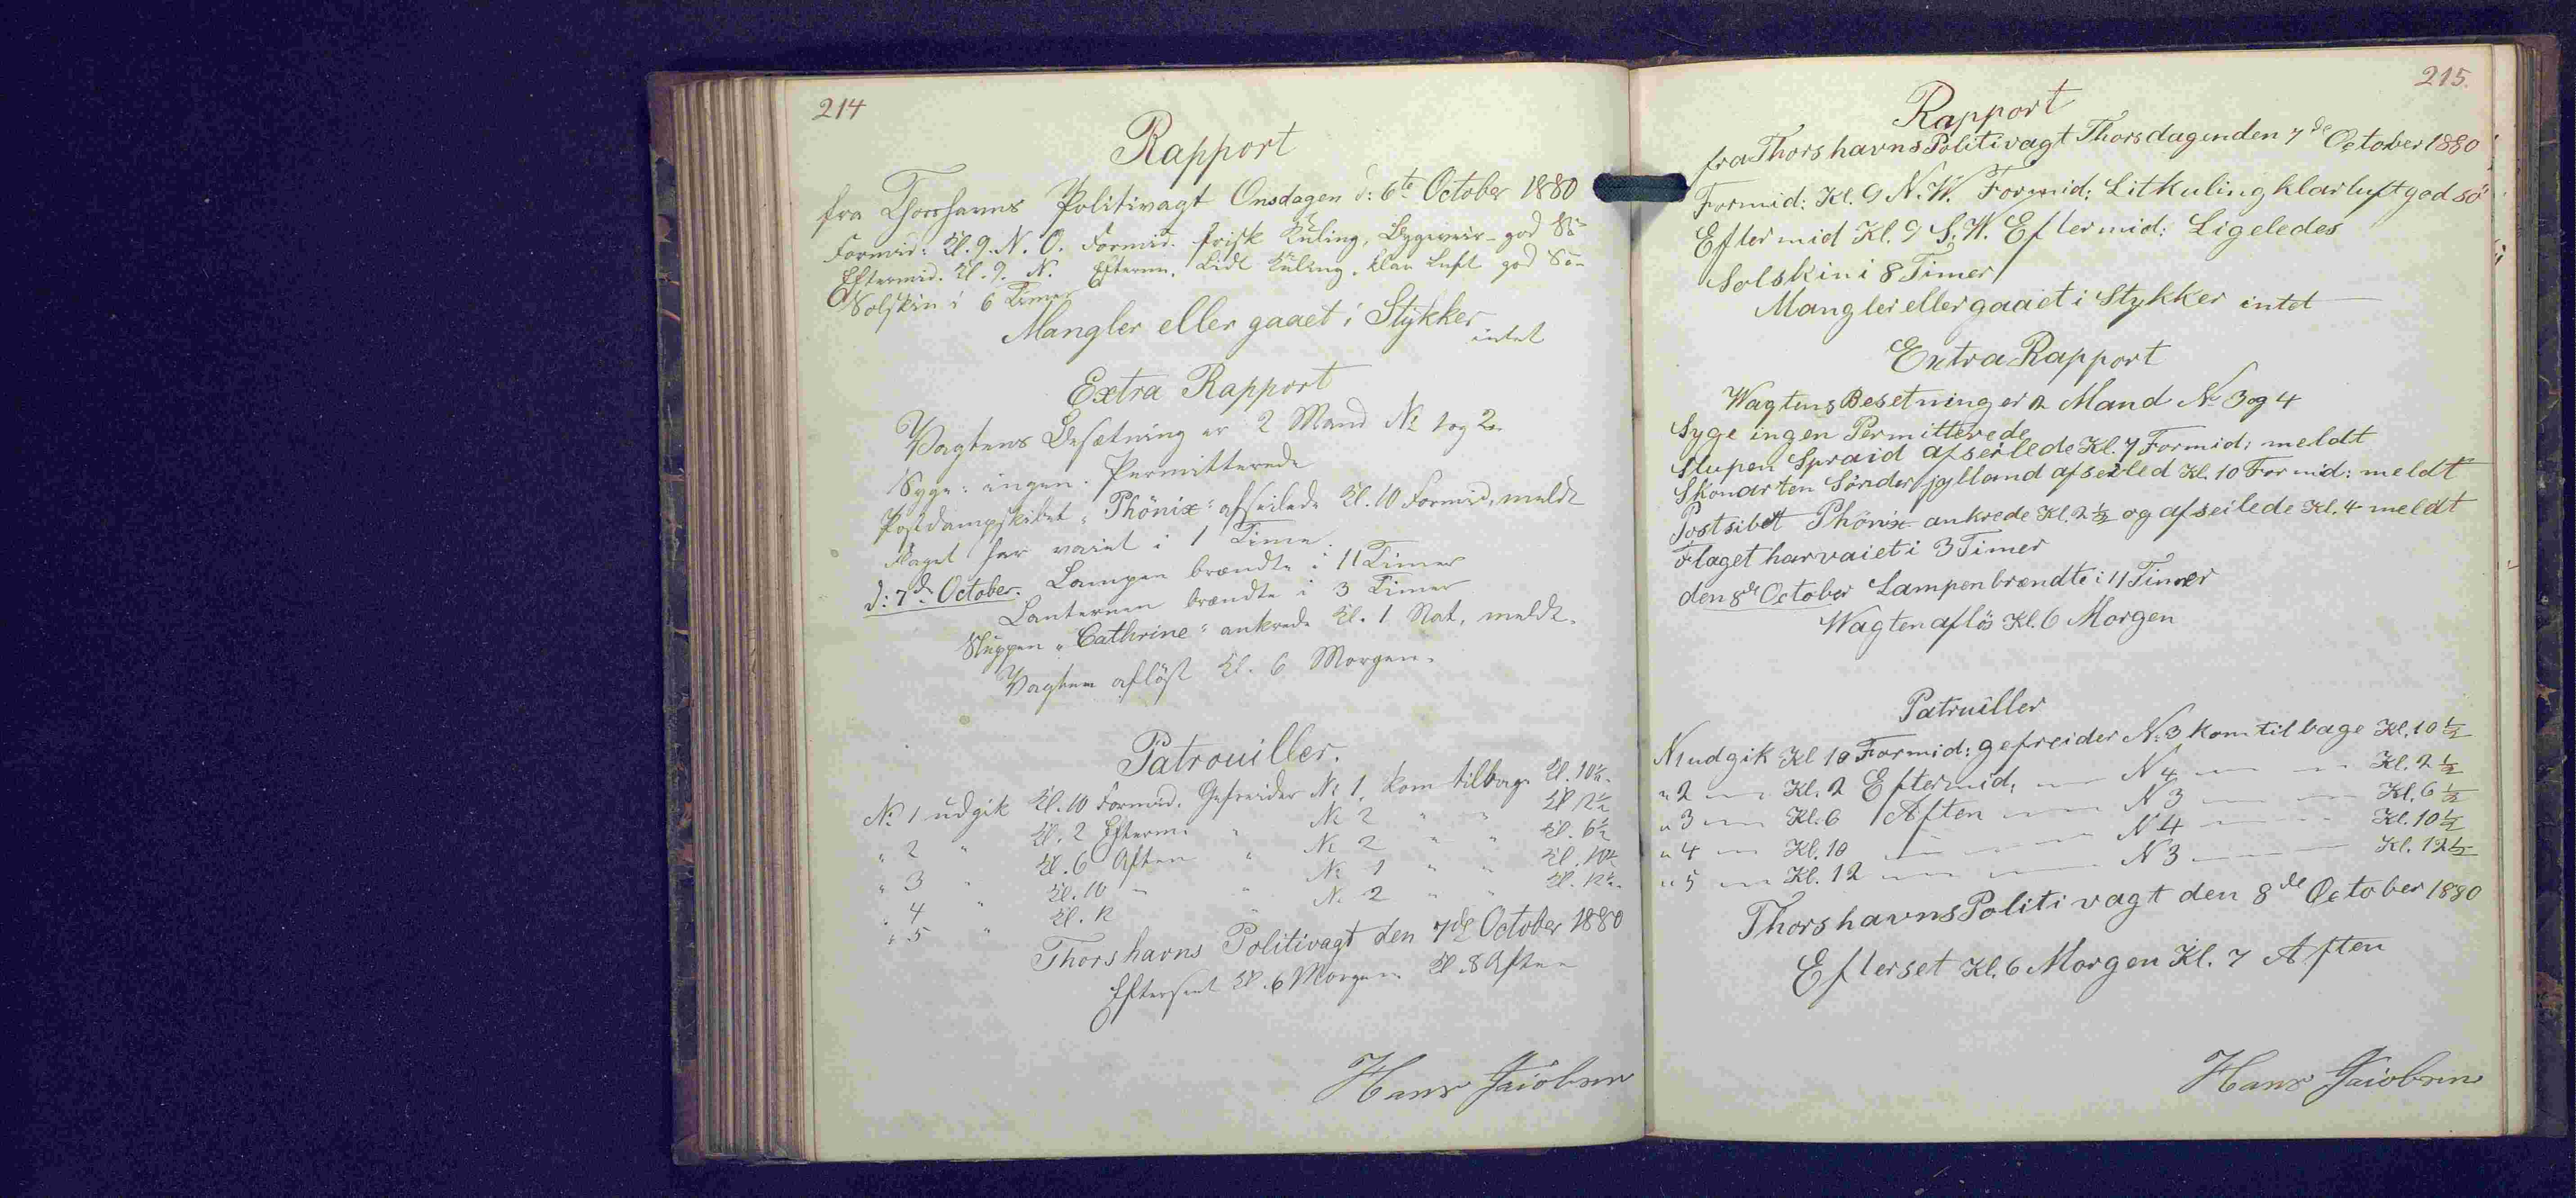 214
Rapport
fra Thorshavns Politivagt Onsdagen d: 6te October 1880
Formid: Kl. 9. N. O. Formid. frisk Kuling, Bygeveir - god Sö
Eftermid. Kl. 9. N. Efterm. Lidt Kuling. klar Luft god Sö
Solskin i 6 Timer
Mangler eller gaaet i Stykker intet
Extra Rapport
Vagtens Besætning er 2 Mand No 1 og 2.
Syge: ingen. Permitterede
Postdampskibet "Phönix" afseilede Kl. 10 Formid, meldt
Flaget har vaiet i 1 Time.
d: 7de October. Lampen brændte i 11 Timer
Lanternen brændte i 3 Timer
Sluppen "Cathrine" ankrede Kl. 1 Nat, meldt.
Vagten aflöst Kl. 6 Morgen.
Patrouiller.
No 1 udgik Kl. 10 Formid. Gefreider No 1, kom tilbage Kl. 10½
" 2 " Kl. 2 Efterm: " No 2 " " Kl 2½
" 3 " Kl. 6 Aften " No 2 " " Kl. 6½
" 4 " Kl. 10 " " No 1 " " Kl. 10½
" 5 " Kl. 12 " No 2 " " Kl. 12½
Thorshavns Politivagt den 7de October 1880
Efterseet Kl. 6 Morgen Kl. 8 Aften
Hans Jacobsen
215.
Rapport
fra Thorshavns Politivagt Thorsdagen den 7de October 1880
Formid: Kl. 9 N. W. Formid; Lit kuling klar luft god sö
Eftermid Kl. 9 S. W. Eftermid: Ligeledes
Solskin i 8 Timer
Mangler eller gaaet i Stykker intet
Extra Rapport
Wagtens Besetning er 2 Mand No 3 og 4
Syge ingen Permitterede
Slupen Spraid afseilede Kl. 7 Formid: meldt
Skonarten Sönderjylland afseiled Kl. 10 Formid: meldt
Postsibet Phönix ankrede Kl. 2½ og afseilede Kl. 4 meldt
Flaget har vaiet i 3 Timer
den 8de October Lampen brendte i 11 Timer
Wagten aflös Kl. 6 Morgen
Patruiller
N 1 udgik Kl 10 Formid: gefreider No 3 kom tilbage Kl. 10½
" 2 — Kl. 2 Eftermid, — N 4 — — Kl. 2½
" 3 — Kl. 6 Aften — N 3 — — Kl. 6½
" 4 — Kl. 10 — — N 4 — — Kl. 10½
" 5 — Kl. 12 — — N 3 — — Kl. 12½
Thorshavns Politivagt den 8de October 1880
Efterset Kl. 6 Morgen Kl. 7 Aften
Hans Jacobsen